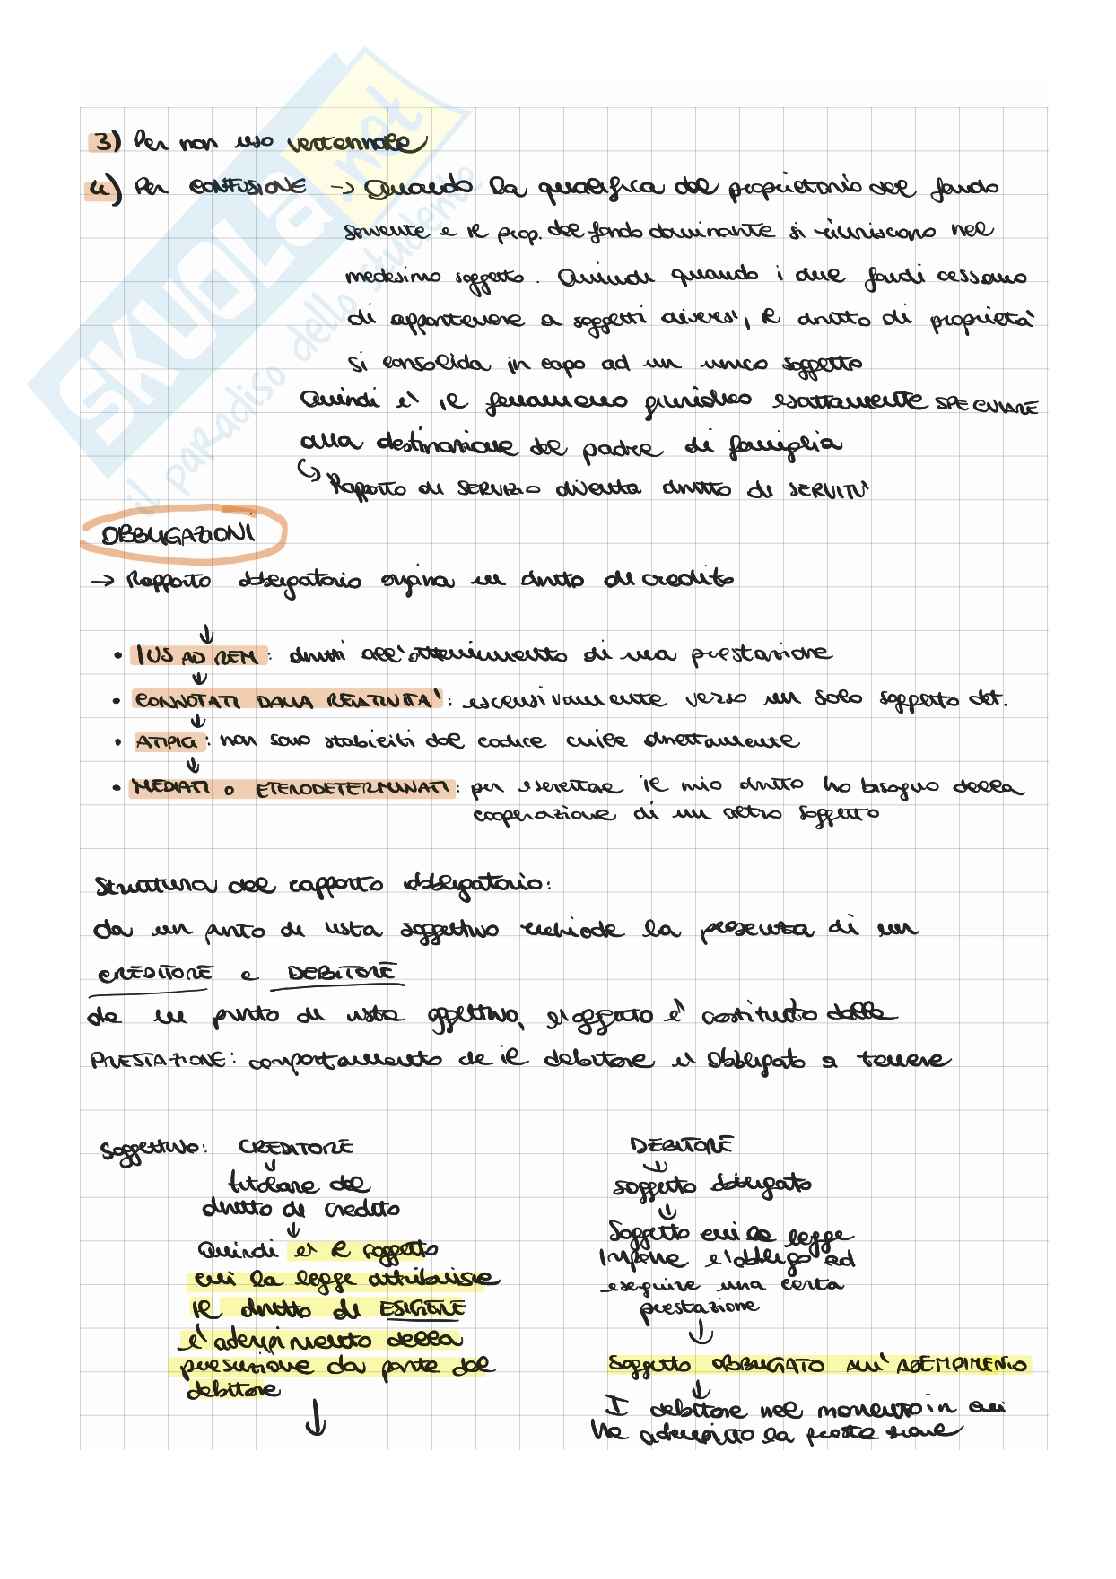 3) Per non uso ventennale
4) Per CONFUSIONE -> Quando la qualifica del proprietario del fondo
servente e il prop. del fondo dominante si riuniscono nel
medesimo soggetto. Quindi quando i due fondi cessano
di appartenere a soggetti diversi, il diritto di proprietà
si consolida in capo ad un unico soggetto
Quindi e' il fenomeno giuridico esattamente SPECULARE
alla destinazione del padre di famiglia
↳ Rapporto di SERVIZIO diventa diritto di SERVITU'
OBBLIGAZIONI
-> Rapporto obbligatorio origina un diritto di credito
↓
• IUS AD REM: diritti all'ottenimento di una prestazione
↓
• CONNOTATI DALLA RELATIVITA': esclusivamente verso un solo soggetto det.
↓
• ATIPICI: non sono stabiliti dal codice civile direttamente
↓
• MEDIATI o ETERODETERMINATI: per esercitare il mio diritto ho bisogno della
cooperazione di un altro soggetto
Struttura del rapporto obbligatorio:
da un punto di vista soggettivo richiede la presenza di un
CREDITORE e DEBITORE
da un punto di vista oggettivo, l'oggetto e' costituito dalla
PRESTAZIONE: comportamento che il debitore e' obbligato a tenere
Soggettivo: CREDITORE DEBITORE
↓ ↓
titolare del soggetto obbligato
diritto di credito ↓
↓ Soggetto cui la legge
Quindi e' il soggetto impone l'obbligo ad
cui la legge attribuisce eseguire una certa
il diritto di ESIGERE prestazione
l'adempimento della ↓
prestazione da parte del Soggetto OBBLIGATO ALL'ADEMPIMENTO
debitore ↓
↓ I debitore nel momento in cui
ha adempiuto la prestazione
SKUOLA.net
il paradiso dello studente